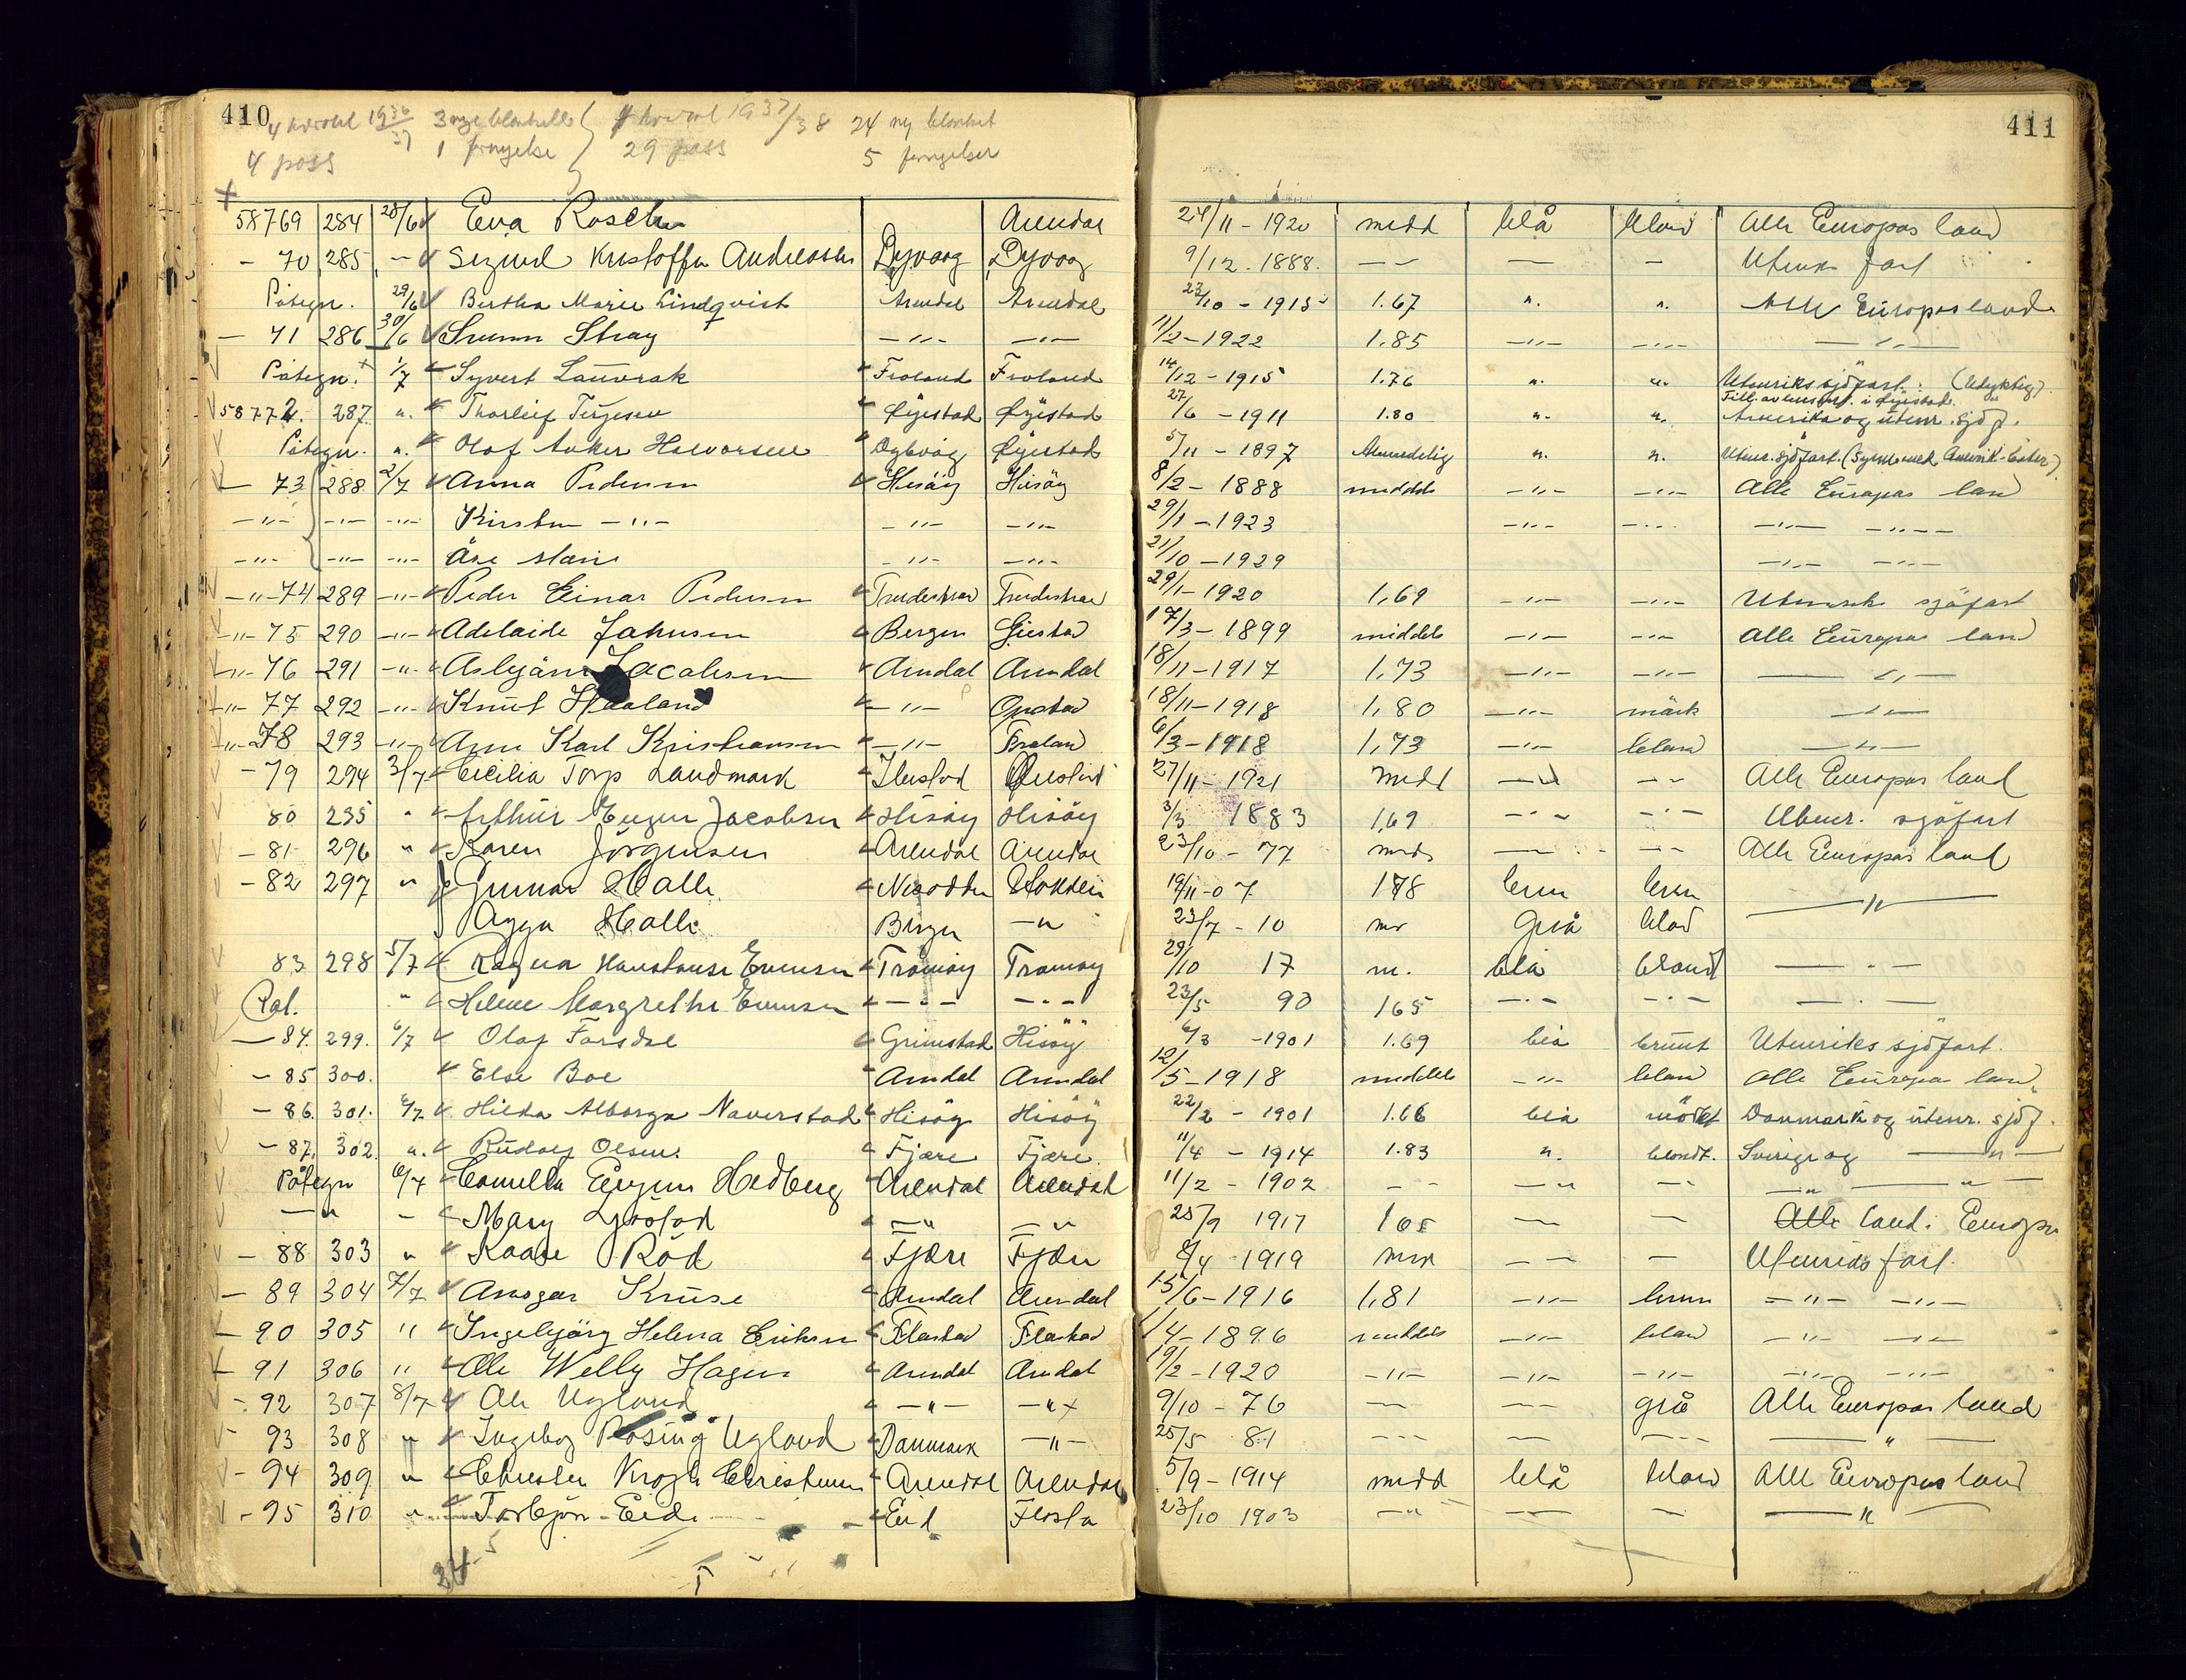 410 411
4 kvartal 1936/37 3 nye blanketter } kvartal 1937/38 24 ny blanket
4 pass 1 fornyelse } 29 pass 5 fornyelser
58769 284 28/6 Eva Arendal 24/11 - 1920 midd blå blond Alle Europas land
- 70 285 - Sigurd Kristoffer Andreassen Dypvaag Dypvaag 9/12 . 1888. — — — Utenr. fart
Påtegn. 29/6 Bertha Marie Lindqvist Arendal Arendal 23/10 - 1915 1.67 ". ". Alle Europas land
— 71 286 30/6 Stray —"— —"— 11/2 - 1922 1.85 —"— —"— —"—
Påtegn. 1/7 Syvert Lauvrak Froland Froland 14/12 - 1915 1.76 ". ". Utenriks sjöfart. (Utyktig)
58772. 287. ". Thorleif Terjesen Øyestad Øyestad 27/6 - 1911 1.80 ". ". Till. av lensm. i Øyestad. Amerika og utenr. sjöf.
Påtegn. ". Olaf Anker Halvorsen Dybvåg Øyestad 5/11 - 1897 Almindelig ". ". Utenr. sjöfart.
— 73 288 2/7 Anna Pedersen Hisöy Hisöy 8/2 - 1888 middels —"— —"— Alle Europas land
—"— —"— —"— Kirsten —"— —"— —"— 29/1 - 1923 —"— —"— —"— —"—
—"— —"— —"— Åse Marie —"— —"— 21/10 - 1929 —"— —"—
—"— 74 289 —"— Peder Einar Pedersen Tvedestrand Tvedestrand 29/1 - 1920 1,69 —"— —"— Utenriks sjöfart
—"— 75 290 —"— Adelaide Johnsen Bergen Öiestad 17/3 - 1899 middels —"— —"— Alle Europas land
—"— 76 291 —"— Asbjörn Jacobsen Arendal Arendal 18/11 - 1917 1,73 —"— —"— —"—
—"— 77 292 —"— Knut Haaland —"— 18/11 - 1918 1,80 —"— mörk —"—
—"— 78 293 —"— Karl Kristiansen —"— Froland 6/3 - 1918 1,73 —"— blond —"—
- 79 294 3/7 Cecilia Torp Landmark 27/11 - 1921 midd —"— —"— Alle Europas land
80 295 " Arthur Jacobsen Hisöy Hisöy 3/3 1883 1,69 —"— —"— Utenr. sjöfart
- 81 296 " Karen Jörgensen Arendal Arendal 23/10 - 77 mids — — Alle Europas land
- 82 297 " Gunnar Halle Nesodden 19/11 - 07 178 brun brun —"—
Halle Bergen —"— 23/7 - 10 Grå blond
83 298 5/7 Ragna Evensen Tromöy Tromöy 29/10 17 m. blå blond —"—
Pat. " Helene Margrethe Evensen —"— —"— 23/5 90 165 —"— —"— —"—
— 84. 299. 6/7 Olaf Farsdal Grimstad Hisöy 6/3 - 1901 1.69 blå brunt Utenriks sjöfart.
- 85 300. Else Boe Arendal Arendal 12/5 - 1918 middels —"— blond Alle Europas land
- 86. 301. 6/7 Hilda Alborga Naverstad Hisöy Hisöy 22/2 - 1901 1.66 blå mörkt Danmark og utenr. sjöf.
- 87. 302. ". Rudolf Olsen. Fjære Fjære 11/4 - 1914 1.83 ". blondt. Sverige og —"—
Påtegn 6/7 Camilla Hedberg Arendal Arendal 11/2 - 1902 — — —"— — —"— —"—
—"— - Mary —"— —"— 25/9 1917 165 — — Alle land i Europa
- 88 303 " Kaare Röd Fjære Fjære 1919 — — Utenriks fart.
— 89 304 7/7 Ansgar Kruse Arendal Arendal 15/6 - 1916 1,81 —"— brun —"— —"—
— 90 305 " Ingebjörg Helena Eriksen 1/4 - 1896 middels —"— blond —"— —"—
— 91 306 " Ole Willy Hagen Arendal Arendal 19/2 - 1920 —"— —"— —"— —"— —"—
- 92 307 8/7 Ole Ugland —"— —"— 9/10 - 76 — — grå Alle Europas land
93 308 " Ingeborg Rosing Ugland Danmark —"— 25/5 81 — — — —"—
- 94 309 " Krogh Christensen Arendal Arendal 5/9 - 1914 midd blå blond Alle Europas land
- 95 310 " Torbjörn Eide Eid Flosta 23/10 1903 —"— — — —"—